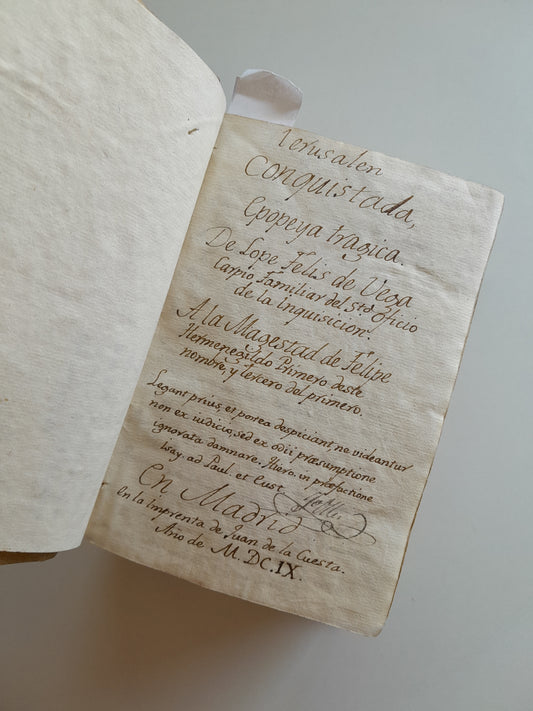 Ierusalen
Conquistada,
Epopeya tragica.
De Lope Felis de Vega
Carpio Familiar del Sto Oficio
de la Inquisicion.
A la Magestad de Felipe
Hermenegildo Primero deste
nombre, y tercero del primero.
Legant prius, et postea despiciant, ne videantur
non ex iudicio, sed ex odii præsumptione
ignorata damnare. Hiero. in præfactione
Isay. ad Paul et Eust.
En Madrid
En la Imprenta de Juan de la Cuesta.
Año de M.DC.IX.